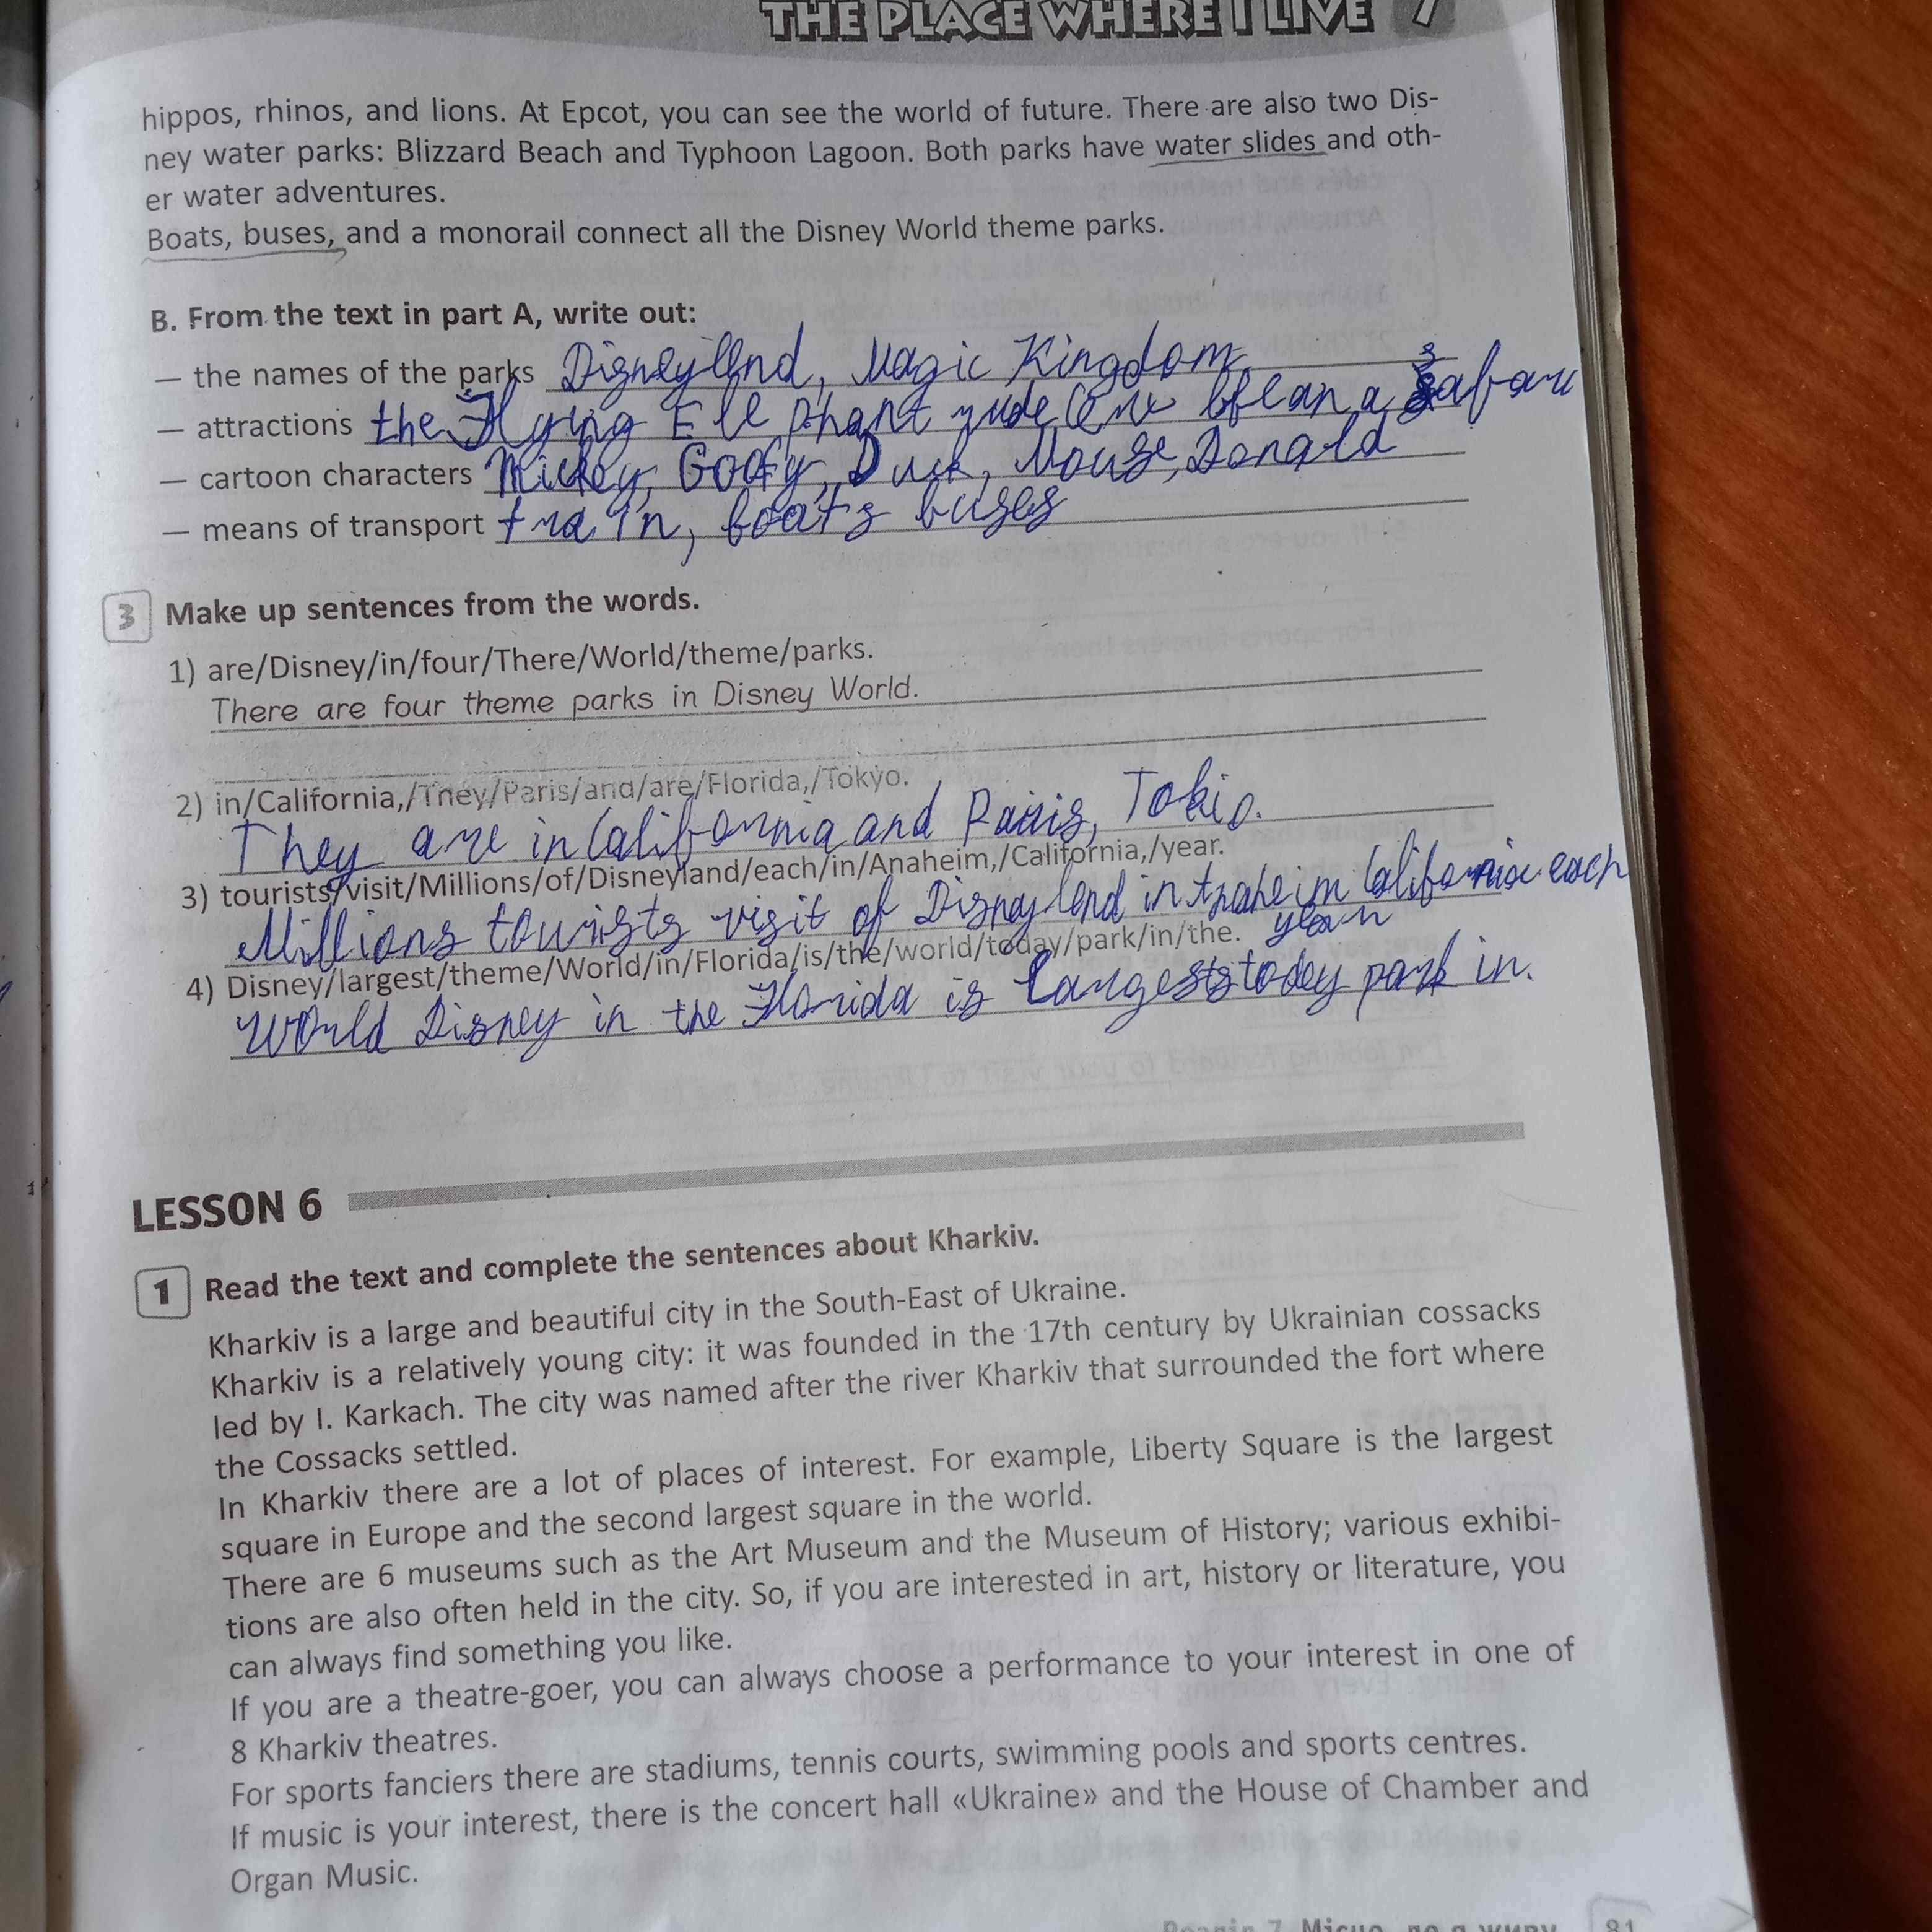 THE PLACE WHERE I LIVE 7
hippos, rhinos, and lions. At Epcot, you can see the world of future. There are also two Dis-
ney water parks: Blizzard Beach and Typhoon Lagoon. Both parks have water slides and oth-
er water adventures.
Boats, buses, and a monorail connect all the Disney World theme parks.
B. From the text in part A, write out:
— the names of the parks Disneylend, Magic Kingdom
— attractions the Flying Ellephant ride a safari
— cartoon characters Mickey, Goofy, Duck, Mouse, Donald
— means of transport train, boats buses
3 Make up sentences from the words.
1) are/Disney/in/four/There/World/theme/parks.
There are four theme parks in Disney World.
2) in/California,/They/Paris/and/are/Florida,/Tokyo.
They are in California and Paris, Tokio.
3) tourists/visit/Millions/of/Disneyland/each/in/Anaheim,/California,/year.
Millions tourists visit of Disneylend in California each
year
4) Disney/largest/theme/World/in/Florida/is/the/world/today/park/in/the.
World Disney in the Florida is today park in.
LESSON 6
1 Read the text and complete the sentences about Kharkiv.
Kharkiv is a large and beautiful city in the South-East of Ukraine.
Kharkiv is a relatively young city: it was founded in the 17th century by Ukrainian cossacks
led by I. Karkach. The city was named after the river Kharkiv that surrounded the fort where
the Cossacks settled.
In Kharkiv there are a lot of places of interest. For example, Liberty Square is the largest
square in Europe and the second largest square in the world.
There are 6 museums such as the Art Museum and the Museum of History; various exhibi-
tions are also often held in the city. So, if you are interested in art, history or literature, you
can always find something you like.
If you are a theatre-goer, you can always choose a performance to your interest in one of
8 Kharkiv theatres.
For sports fanciers there are stadiums, tennis courts, swimming pools and sports centres.
If music is your interest, there is the concert hall «Ukraine» and the House of Chamber and
Organ Music.
81